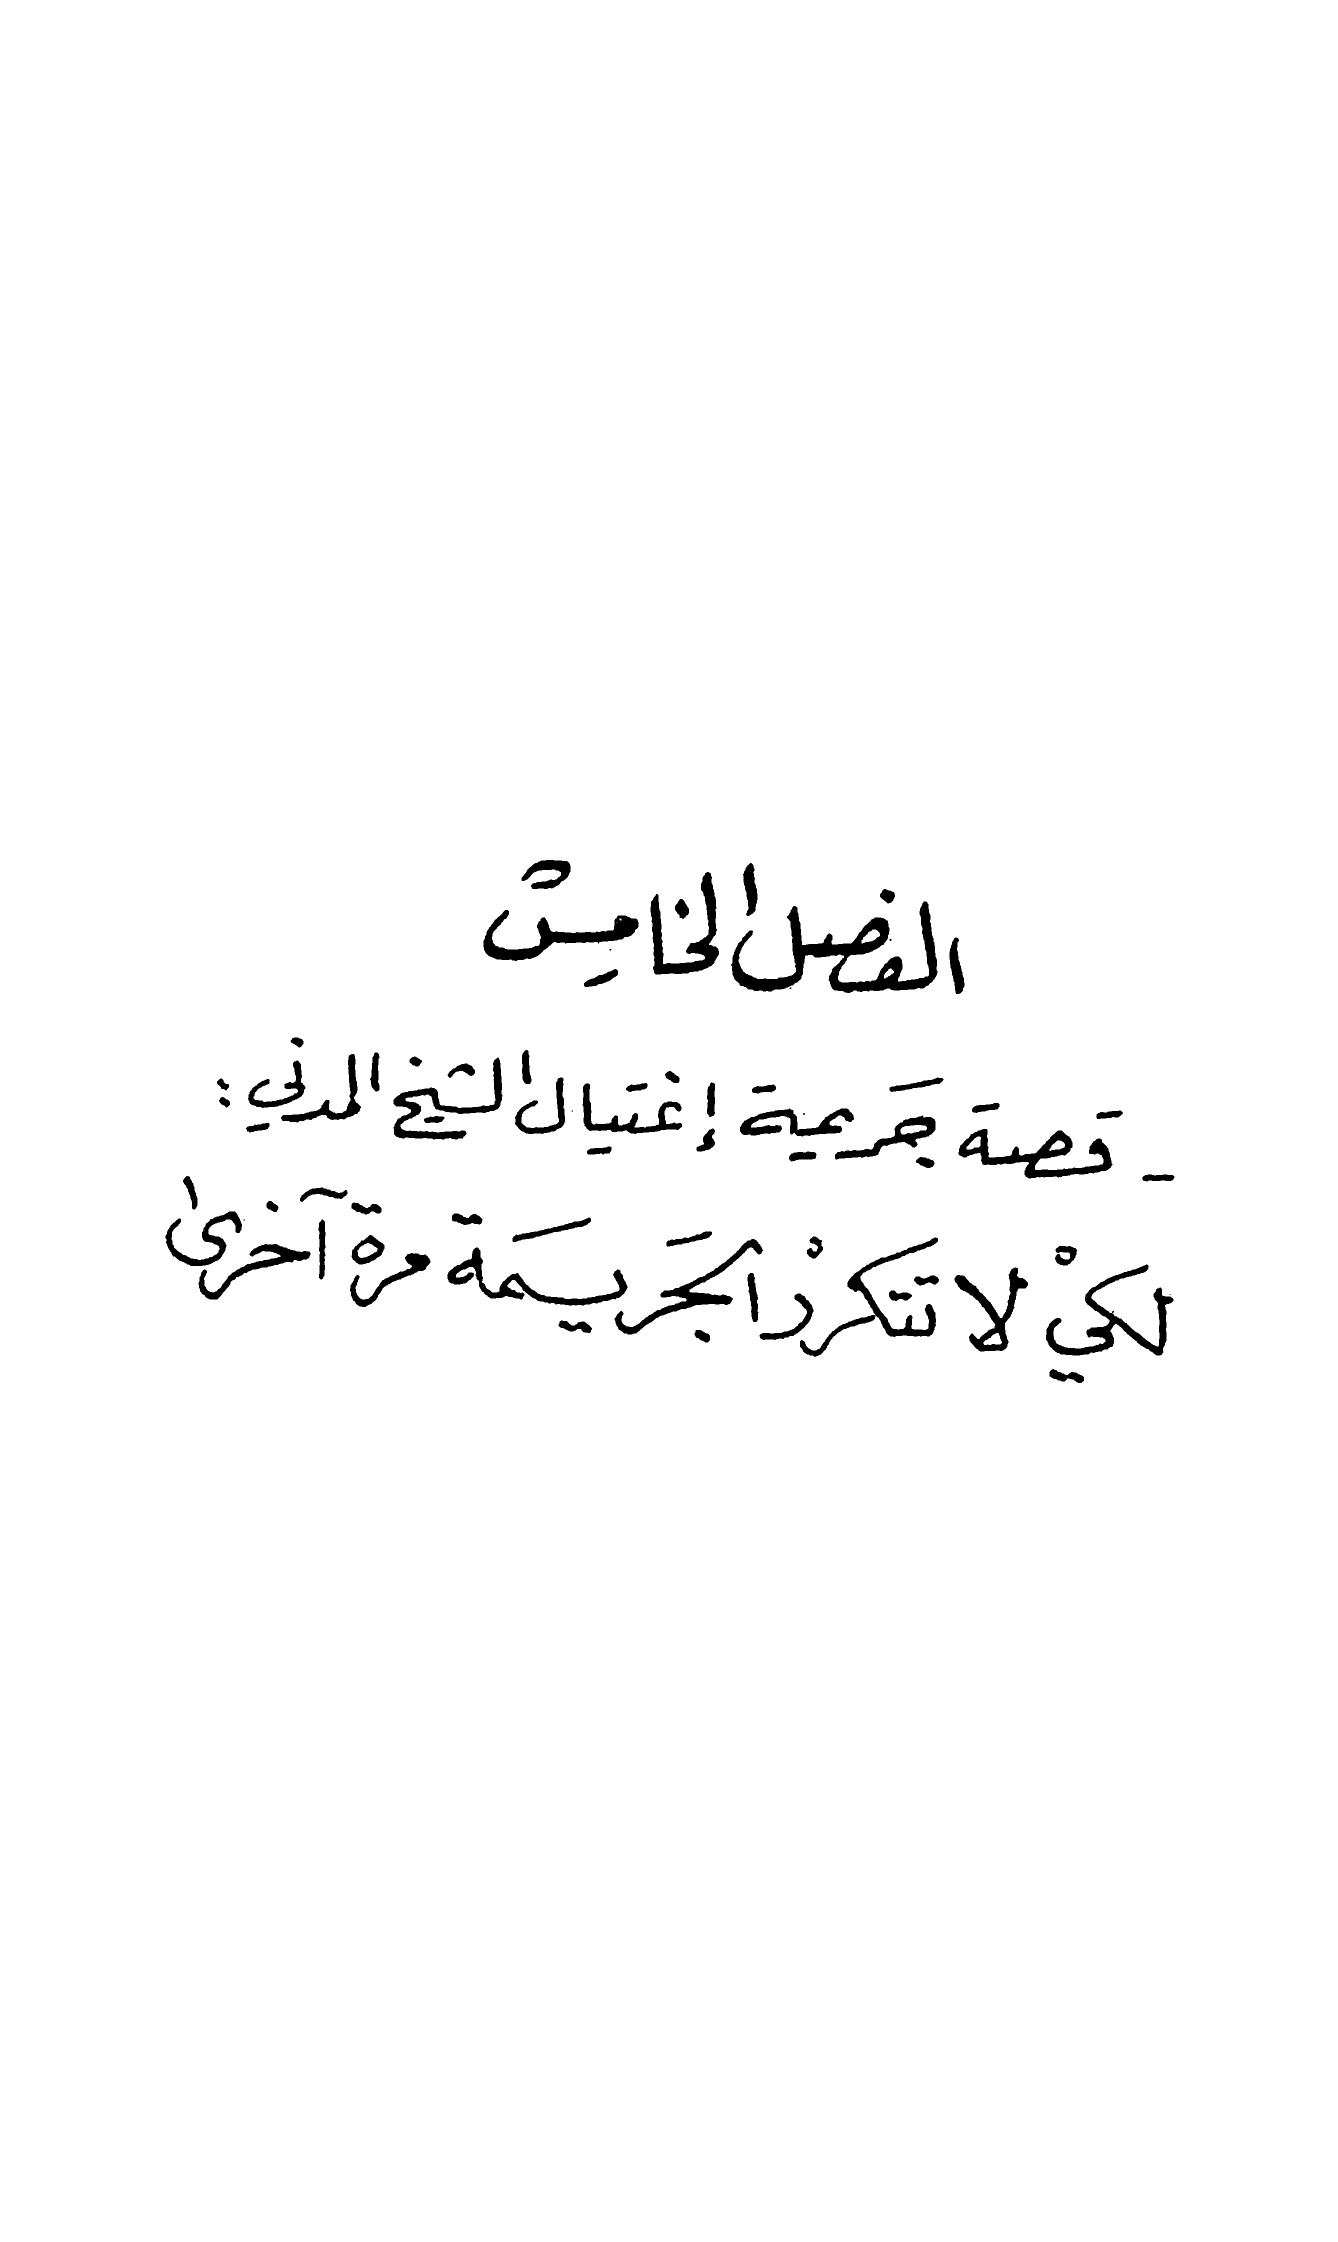 الفصل الخامس
- قصة جَريمة إغتيال الشيخ المدني :
لكيْ لا تتكررْ الجَريمَة مرة آخرىٰ